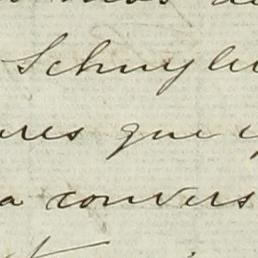 Schuyle
ures que
a convers